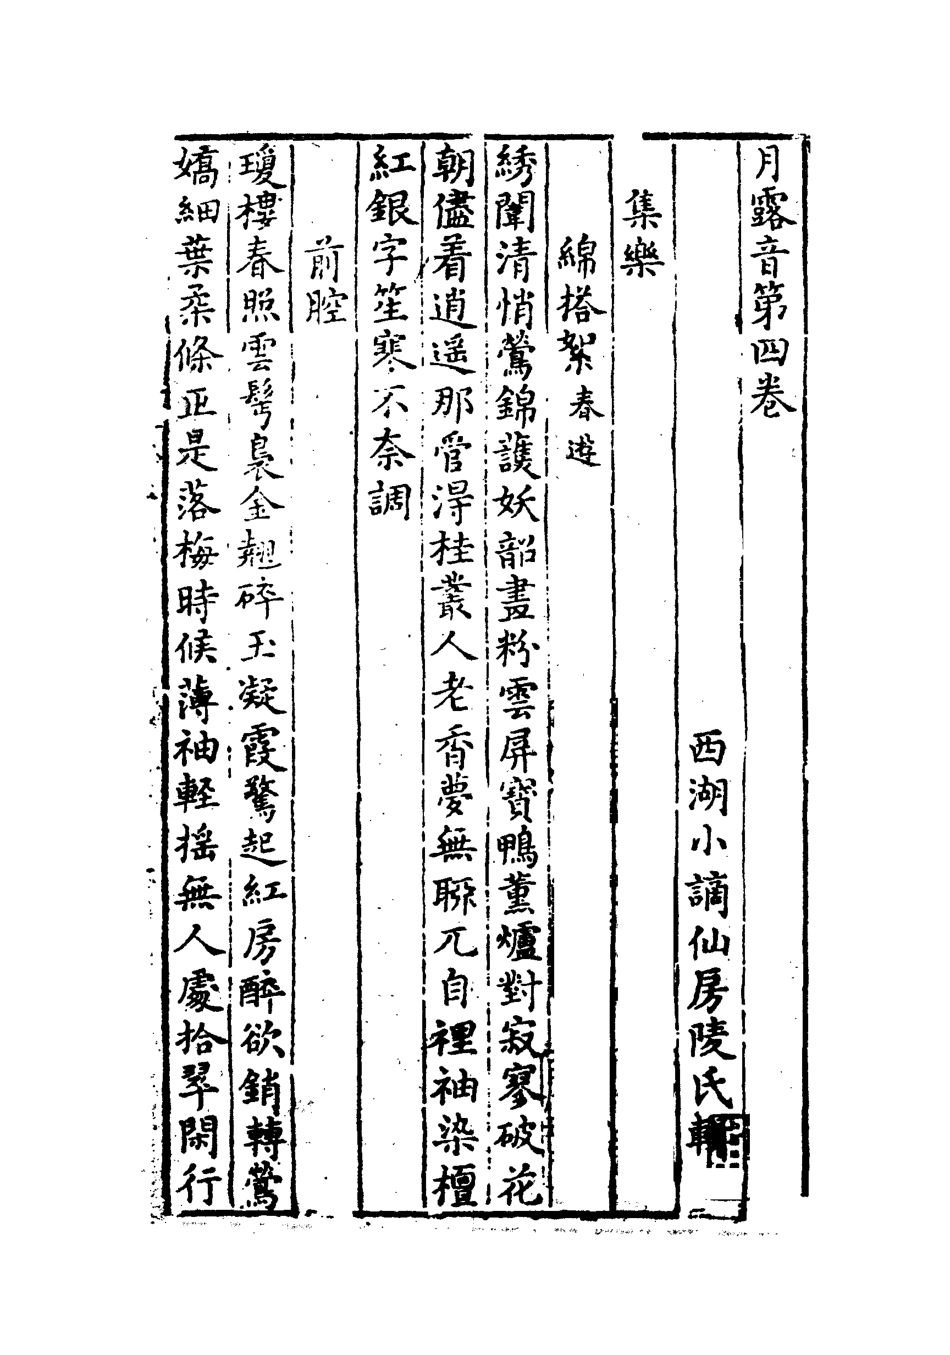 月露音第四卷
西湖小謫仙房陵氏輯
集樂
綿搭絮 春遊
綉闈清悄鶯錦護妖韶畫粉雲屏寳鴨薰爐對寂寥破花
朝儘着逍遥那管得桂叢人老香夢無聊兀自裡袖染檀
紅銀字笙寒不奈調
前腔
瓊樓春照雲髩裊金翹碎玉凝霞驚起紅房醉欲銷轉鶯
嬌細葉柔條正是落梅時候薄袖軽揺無人處拾翠閑行